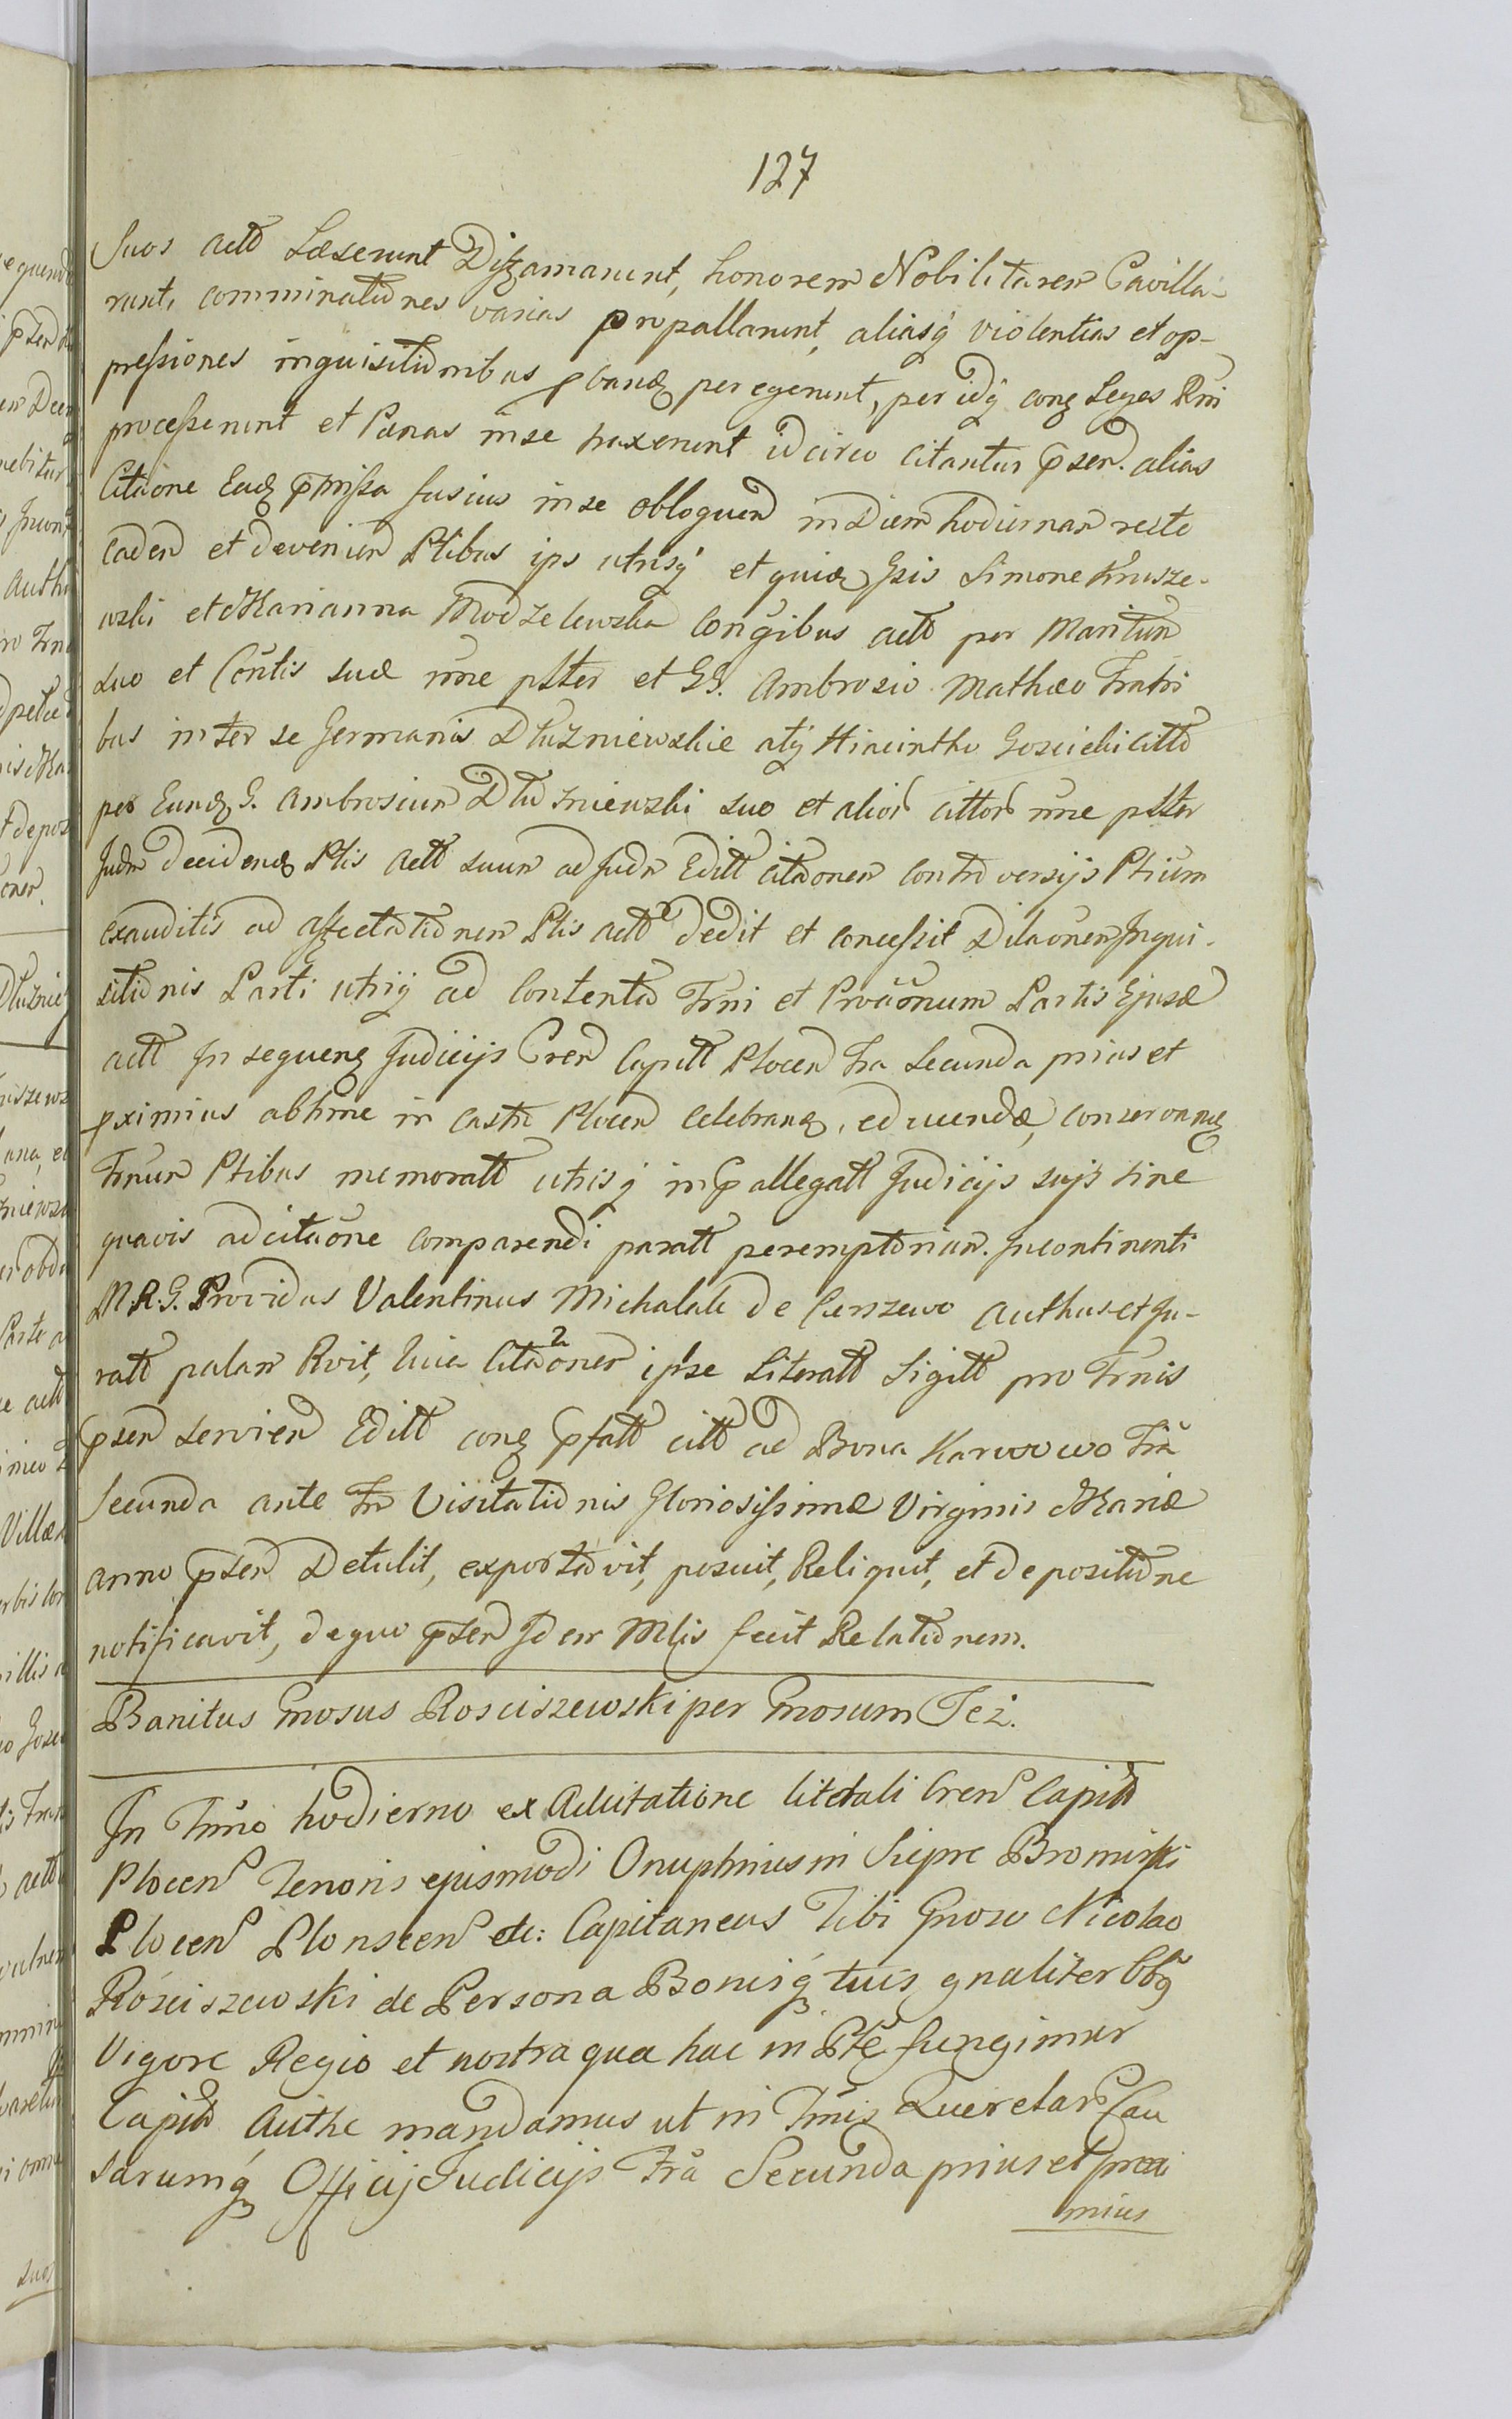 127
Suos actt Læserunt Diffamarunt, honorem Nobilitarem Cavilla-
runt, comminationes varias propallarunt, aliasq́ violentias et op-
pressiones inquisitionibus pband peregerunt, per idq́ conq Leges Rni
processerunt et Pænas in se traxerunt idcirco citantur p̄sen. alias
Citāone Eadq p̄missa fusius in se obloquen in Diem hodiernam recte
caden et devenien Ptibus ips utrisq́ et quidq Gsis Simone Krusze-
wski et Marianna Modzelewska Cōngibus actt per Maritum
suo et Cōntis suæ nn̄e ptter et GG. Ambrosio Mathæo Fratri
bus inter se Germanis Dłuzniewskie atq́ Hiacintho Goscicki citto
per Eundq G. Ambrosium Dłuzniewski suo et alior cittor nn̄e ptter
Judm decidendq Ptis actt suum ad Judm Editt citāonem controversijs Ptium
exauditis ad affectationem Ptis actt dedit et concessit Dilāonem Inqui-
sitionis Parti utriq́ ad Contenta Trni et Prōāonum Partis Ejusd
actt In sequenq Judicijs Cren Capitt Plocen fra Secunda prius et
pximius abhinc in Castro Plocen celebranq, educendæ, conservanq
Trnum Ptibus memoratt utrisq́ in p̄allegatt Judicijs sujs sine
quavis adcitāone comparendi paratt peremptorium. Incontinenti
M.R.G. Providus Valentinus Michalak de Cierszewo authus et Ju-
ratt palam Rvit, Quia Citāones 2 ipse Literatt Sigitt pro Trnis
p̄sen servien Editt conq p̄fatt citt ad Bona Karwowo Frā
Secunda ante Fm Visitationis Gloriosissimæ Virginis Mariæ
anno p̄sen Detulit, exportavit, posuit, Reliquit, et de positione
notificavit, de quo p̄sen Idem Mlis fecit Relationem.
Banitus Gnosus Rosciszewski per Gnosum Tez.
In Trno hodierno ex Adcitatione literali Cren Capitt
Plocen Tenoris ejusmodi Onuphrius in Sieprc Bromirski
Plocen Plonscen etc: Capitaneus Tibi Gnoso Nicolao
Rościszewski de Persona Bonisq́ tuis gnaliter Obq
Vigore Regio et nostra qua hac in Pte fungimur
Capitt Authe mandamus ut in Trnis Querelar Cau
sarumq́ Officij Judicijs Frā Secunda prius et proxi
mius